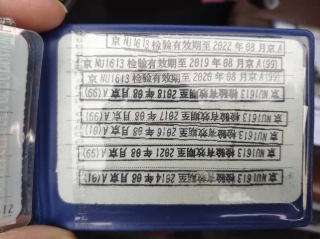 京 NU1613 检验有效期至 2022 年 08 月 京 A
京 NU1613 检验有效期至 2019 年 08 月 京 A (99)
京 NU1613 检验有效期至 2020 年 08 月 京 A (99)
京 NU1613 检验有效期至 2018 年 08 月 京 A (99)
京 NU1613 检验有效期至 2017 年 08 月 京 A (99)
京 NU1613 检验有效期至 2016 年 08 月 京 A (01)
京 NU1613 检验有效期至 2021 年 08 月 京 A (99)
京 NU1613 检验有效期至 2014 年 08 月 京 A (01)